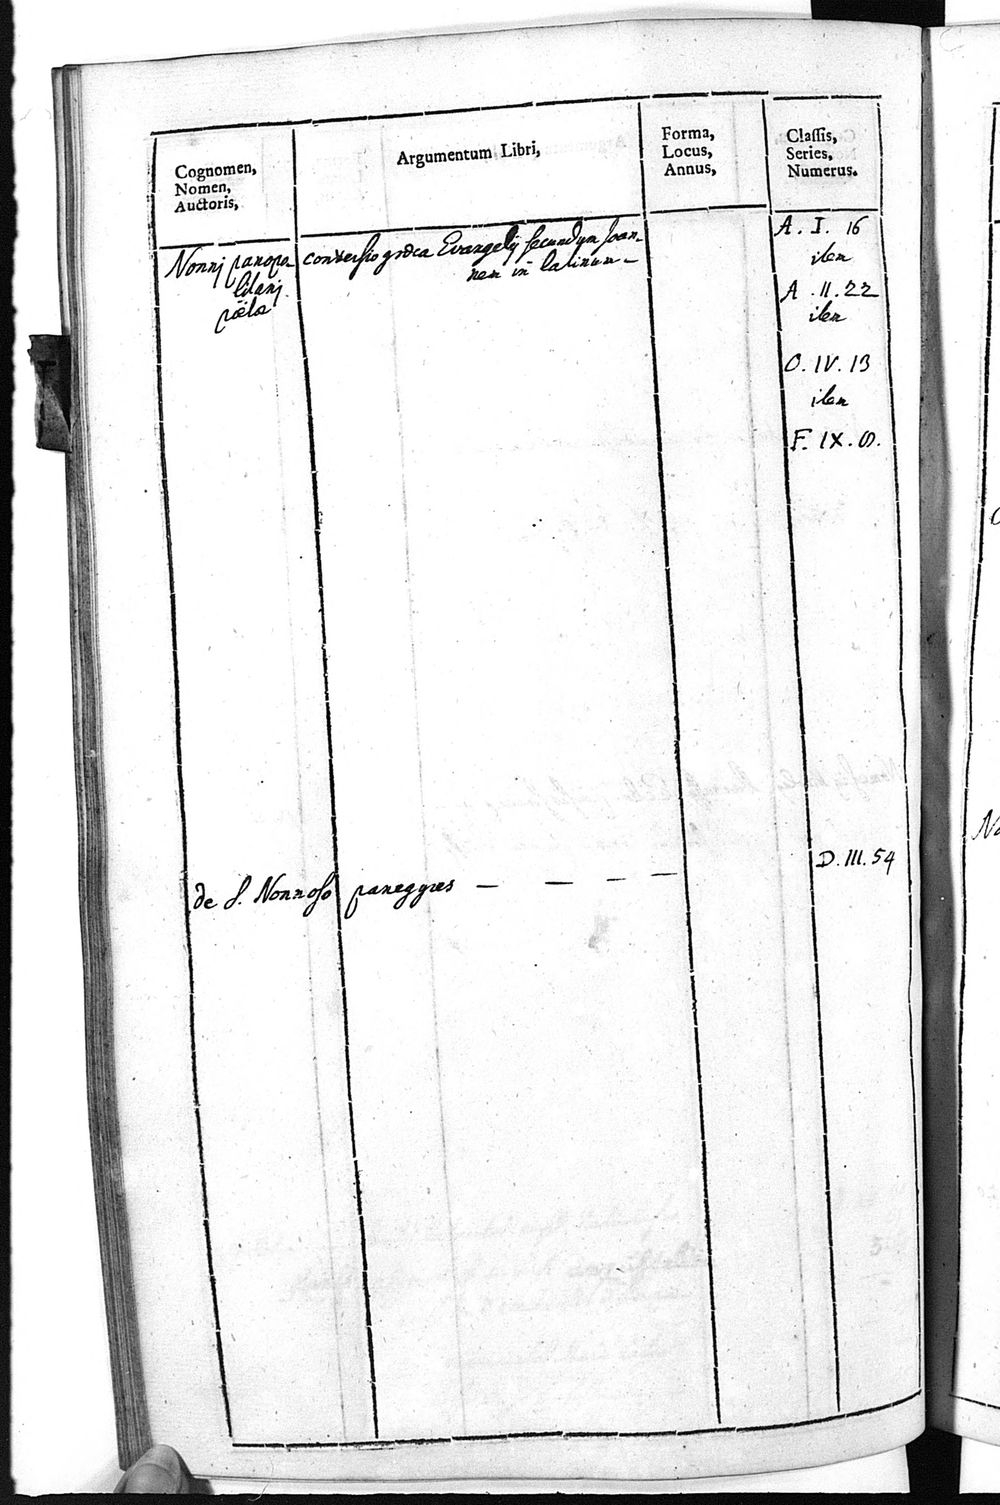 Cognomen,
Nomen,
Auctoris,
Argumentum Libri,
Forma,
Locus,
Annus,
Classis,
Series,
Numerus.
Nonnj panopo-
litanj
pöetæ
conversio græca Evangelij secundum Joan-
nem in latinum -
A. I. 16
item
A. II. 22
item
O. IV. 13
item
F. IX.
de S. Nonnoso panegyres - - - -
D. III. 54